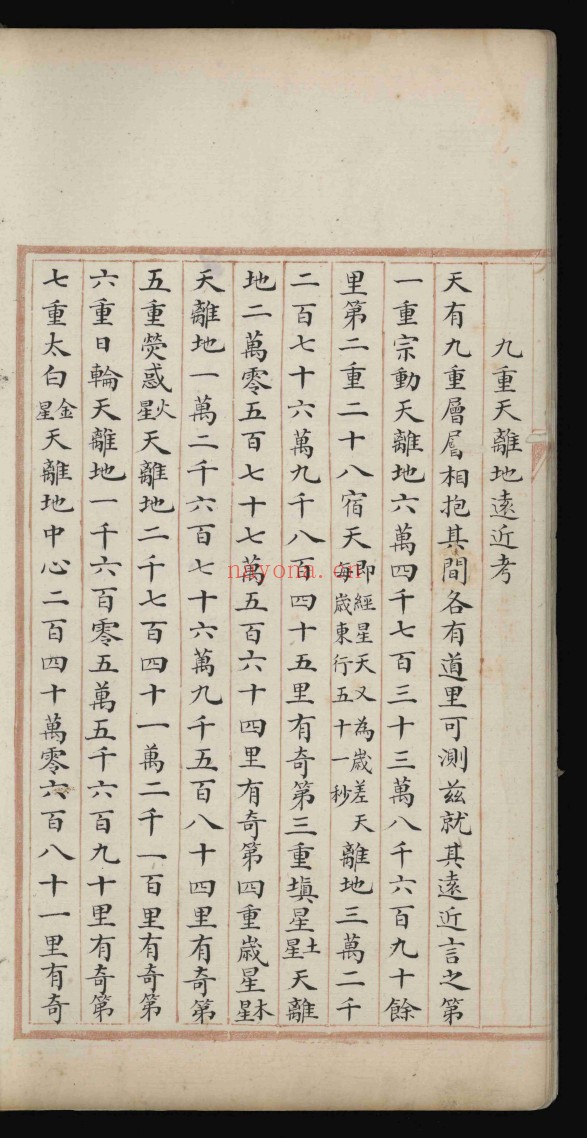 九重天離地遠近考
天有九重層層相抱其間各有道里可測茲就其遠近言之第
一重宗動天離地六萬四千七百三十三萬八千六百九十餘
里第二重二十八宿天即經星天又為歲差天每歲東行五十一秒離地三萬二千
二百七十六萬九千八百四十五里有奇第三重塡星土星天離
地二萬零五百七十七萬五百六十四里有奇第四重歲星木星
天離地一萬二千六百七十六萬九千五百八十四里有奇第
五重熒惑火星天離地二千七百四十一萬二千一百里有奇第
六重日輪天離地一千六百零五萬五千六百九十里有奇第
七重太白金星天離地中心二百四十萬零六百八十一里有奇
nayona.cn